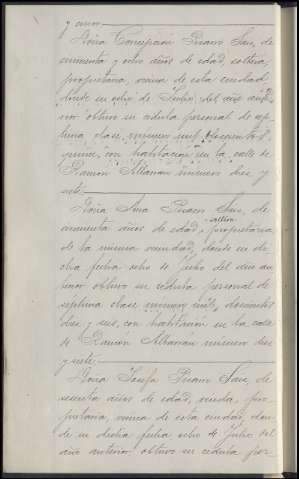 y cinco.
Doña Concepcion Pizarro Sanz, de
cincuenta y ocho años de edad, soltera,
propietaria, vecina de esta ciudad
donde en ocho de Julio del año ante
rior obtuvo su cedula personal de sep
tima clase, numero mil doscientos
quince, con habitacion en la calle de
Ramon Albarran numero diez y
siete.
Doña Ana Pizarro Sanz, de
soltera
cincuenta años de edad, propietaria
de la misma vecindad, donde en di
cha fecha ocho de Julio del año an
terior obtuvo su cedula personal de
septima clase numero mil doscientos
diez y seis, con habitacion en la calle
de Ramón Albarran numero diez
y siete.
Doña Josefa Pizarro Sanz, de
sesenta años de edad, viuda, pro
pietaria, vecina de esta ciudad, don
de en dicha fecha ocho de Julio del
año anterior obtuvo su cedula per